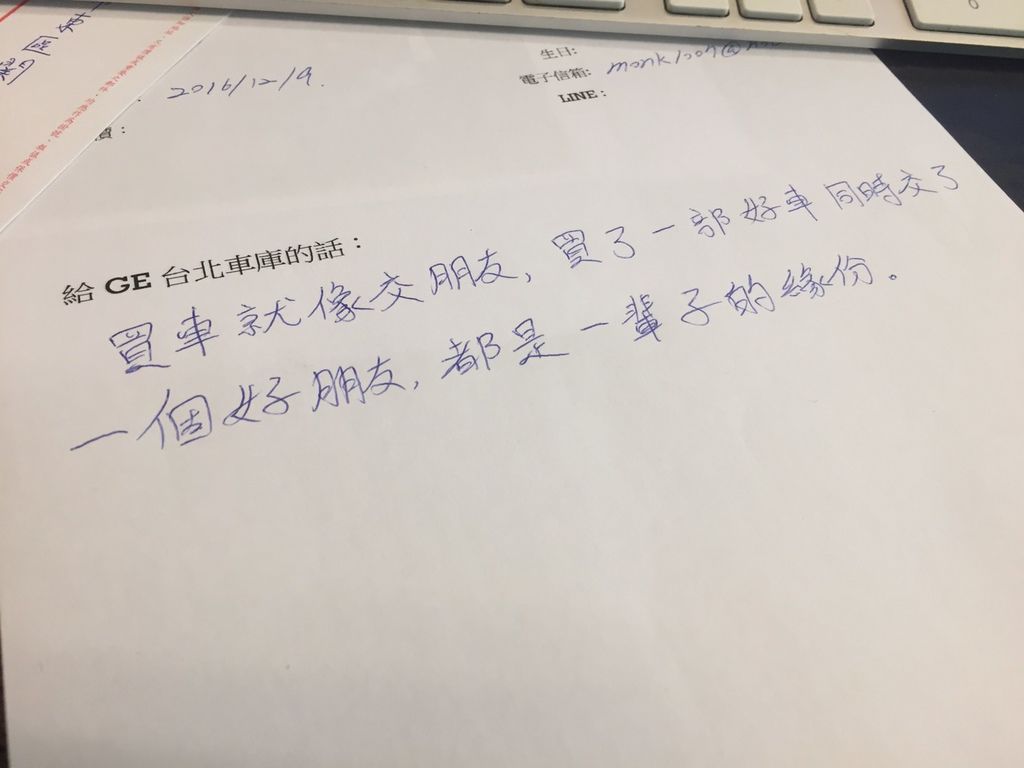 2016/12/9.
生日:
電子信箱: monk1007@
LINE:
價:
給 GE 台北車庫的話:
買車就像交朋友, 買了一部好車同時交了
一個好朋友, 都是一輩子的緣份。